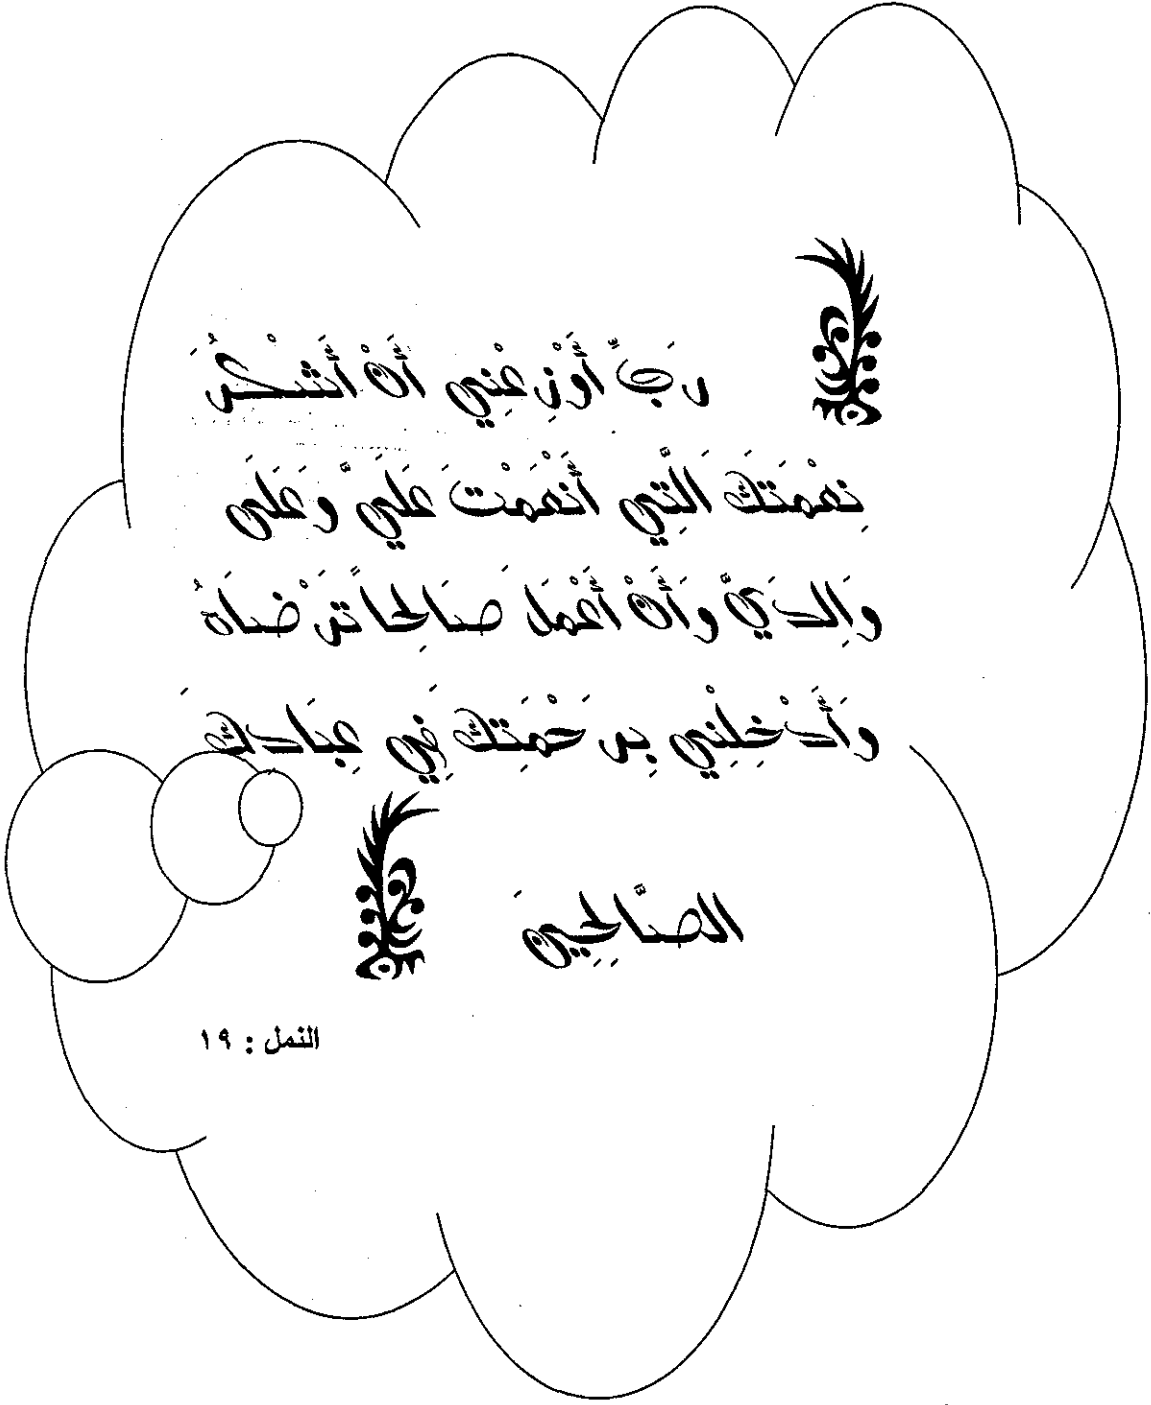 رَبِّ أَوْزِعْنِي أَنْ أَشْكُرَ
نِعْمَتَكَ الَّتِي أَنْعَمْتَ عَلَيَّ وَعَلَى
وَالِدَيَّ وَأَنْ أَعْمَلَ صَالِحاً تَرْضَاهُ
وَأَدْخِلْنِي بِرَحْمَتِكَ فِي عِبَادِكَ
الصَّالِحِينَ
النمل : ١٩